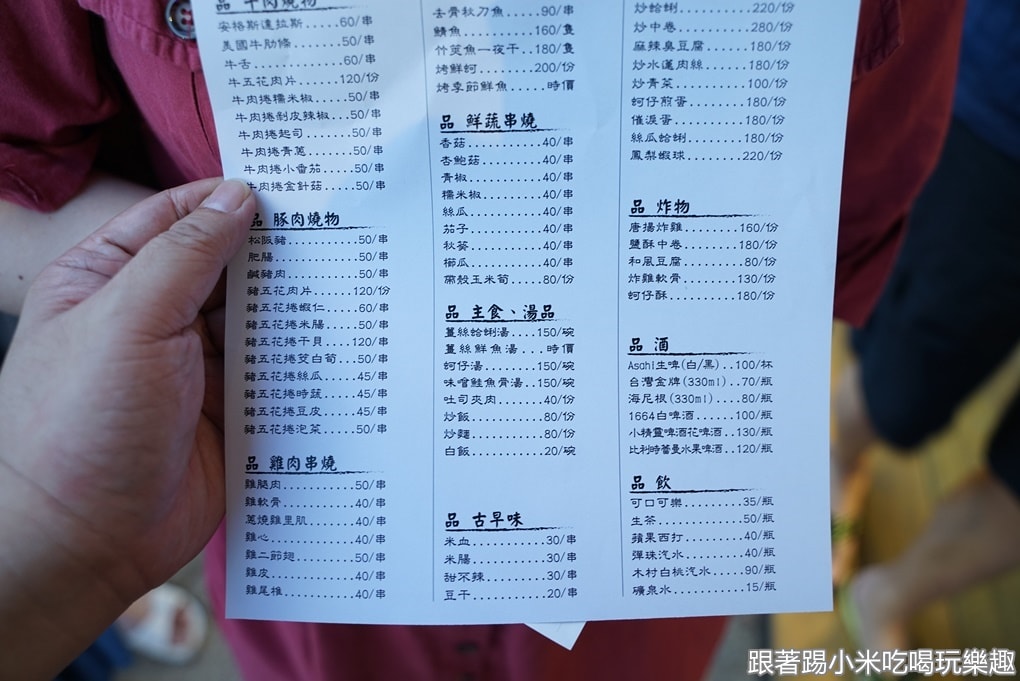 品 牛肉燒物
安格斯達拉斯.....60/串
美國牛肋條.......50/串
牛舌.............60/串
牛五花肉片......120/份
牛肉捲糯米椒.....50/串
牛肉捲剝皮辣椒...50/串
牛肉捲起司.......50/串
牛肉捲青蔥.......50/串
牛肉捲小番茄.....50/串
牛肉捲金針菇.....50/串
品 豚肉燒物
松阪豬...........50/串
肥腸.............50/串
鹹豬肉...........50/串
豬五花肉片......120/份
豬五花捲蝦仁.....60/串
豬五花捲米腸.....50/串
豬五花捲干貝....120/串
豬五花捲茭白筍...50/串
豬五花捲絲瓜.....45/串
豬五花捲時蔬.....45/串
豬五花捲豆皮.....45/串
豬五花捲泡菜.....50/串
品 雞肉串燒
雞腿肉...........50/串
雞軟骨...........40/串
蔥燒雞里肌.......40/串
雞心.............40/串
雞二節翅.........50/串
雞皮.............40/串
雞尾椎...........40/串
去骨秋刀魚.......90/串
鯖魚............160/隻
竹筴魚一夜干..180/隻
烤鮮蚵.........200/份
烤季節鮮魚.....時價
品 鮮蔬串燒
香菇............40/串
杏鮑菇..........40/串
青椒............40/串
糯米椒..........40/串
絲瓜............40/串
茄子............40/串
秋葵............40/串
櫛瓜............40/串
帶殼玉米筍......80/份
品 主食、湯品
薑絲蛤蜊湯....150/碗
薑絲鮮魚湯...時價
蚵仔湯........150/碗
味噌鮭魚骨湯..150/碗
吐司夾肉.......40/份
炒飯...........80/份
炒麵...........80/份
白飯...........20/碗
品 古早味
米血...........30/串
米腸...........30/串
甜不辣.........30/串
豆干...........20/串
炒蛤蜊.........220/份
炒中卷.........280/份
麻辣臭豆腐.....180/份
炒水蓮肉絲.....180/份
炒青菜.........100/份
蚵仔煎蛋.......180/份
催淚蛋.........180/份
絲瓜蛤蜊.......180/份
鳳梨蝦球.......220/份
品 炸物
唐揚炸雞.......160/份
鹽酥中卷.......180/份
和風豆腐........80/份
炸雞軟骨.......130/份
蚵仔酥.........180/份
品 酒
Asahi生啤(白/黑)..100/杯
台灣金牌(330ml)..70/瓶
海尼根(330ml)....80/瓶
1664白啤酒......100/瓶
小精靈啤酒花啤酒..130/瓶
比利時蕾曼水果啤酒..120/瓶
品 飲
可口可樂.........35/瓶
生茶.............50/瓶
蘋果西打.........40/瓶
彈珠汽水.........40/瓶
木村白桃汽水.....90/瓶
礦泉水...........15/瓶
跟著踢小米吃喝玩樂趣